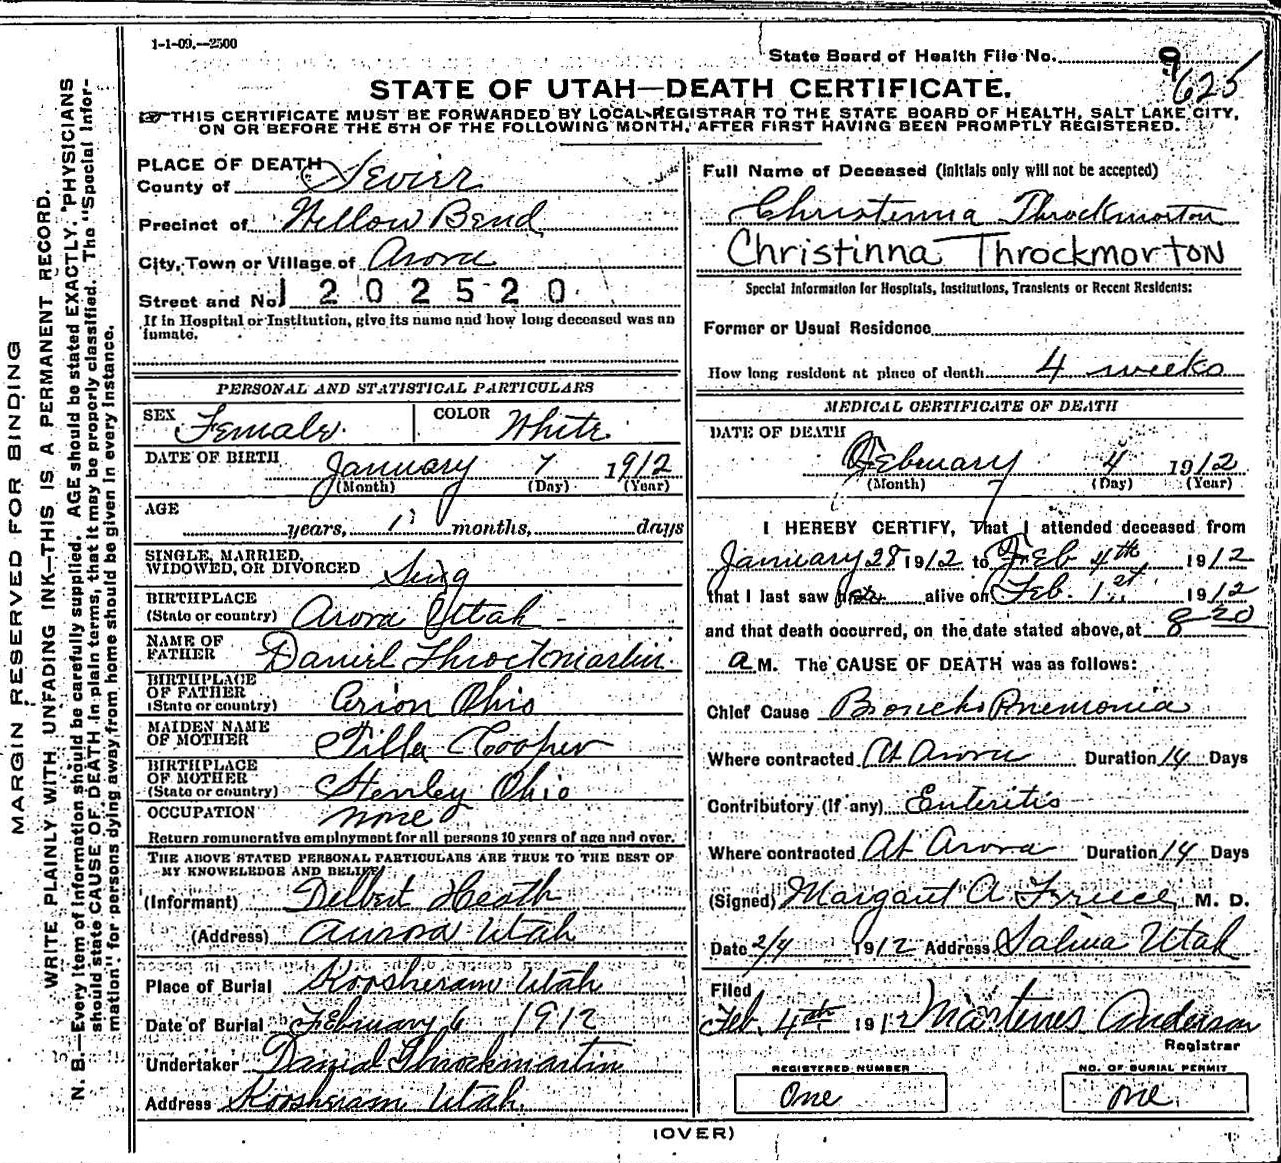 1-1-09.—2500
State Board of Health File No. 9
625
STATE OF UTAH—DEATH CERTIFICATE.
THIS CERTIFICATE MUST BE FORWARDED BY LOCAL REGISTRAR TO THE STATE BOARD OF HEALTH, SALT LAKE CITY,
ON OR BEFORE THE 5TH OF THE FOLLOWING MONTH, AFTER FIRST HAVING BEEN PROMPTLY REGISTERED.
MARGIN RESERVED FOR BINDING
WRITE PLAINLY WITH UNFADING INK—THIS IS A PERMANENT RECORD.
N. B.—Every item of information should be carefully supplied. AGE should be stated EXACTLY. PHYSICIANS
should state CAUSE OF DEATH in plain terms, that it may be properly classified. The "Special Infor-
mation" for persons dying away from home should be given in every instance.
PLACE OF DEATH
County of Sevier
Precinct of Willow Bend
City, Town or Village of Arora
Street and No. 1202520
If in Hospital or Institution, give its name and how long deceased was an
inmate.
PERSONAL AND STATISTICAL PARTICULARS
SEX Female COLOR White
DATE OF BIRTH January 7 1912
(Month) (Day) (Year)
AGE
years, 1 months, days
SINGLE, MARRIED,
WIDOWED, OR DIVORCED Sing
BIRTHPLACE
(State or country) Arora Utah
NAME OF
FATHER Daniel Throckmartin
BIRTHPLACE
OF FATHER
(State or country) Arion Ohio
MAIDEN NAME
OF MOTHER Tilla Cooper
BIRTHPLACE
OF MOTHER
(State or country) Stenley Ohio
OCCUPATION none
Return remunerative employment for all persons 10 years of age and over.
THE ABOVE STATED PERSONAL PARTICULARS ARE TRUE TO THE BEST OF
MY KNOWLEDGE AND BELIEF
(Informant) Delbert Heath
(Address) Aurora Utah
Place of Burial Koosheram Utah
Date of Burial February 6 1912
Undertaker Daniel Throckmartin
Address Koosheram Utah.
Full Name of Deceased (Initials only will not be accepted)
Christinna Throckmorton
Christinna Throckmorton
Special Information for Hospitals, Institutions, Transients or Recent Residents:
Former or Usual Residence
How long resident at place of death 4 weeks
MEDICAL CERTIFICATE OF DEATH
DATE OF DEATH
February 4 1912
(Month) (Day) (Year)
I HEREBY CERTIFY, That I attended deceased from
January 28 1912 to Feb 4th 1912
that I last saw her alive on Feb. 1st 1912
and that death occurred, on the date stated above, at 8 20
a M. The CAUSE OF DEATH was as follows:
Chief Cause Broncho Pnemonia
Where contracted At Arora Duration 14 Days
Contributory (If any) Enteritis
Where contracted At Arora Duration 14 Days
(Signed) Margaut A. M. D.
Date 2/4 1912 Address Salina Utah
Filed
Feb. 4th 1912 Martines Anderson
Registrar
REGISTERED NUMBER
One
NO. OF BURIAL PERMIT
one.
(OVER)